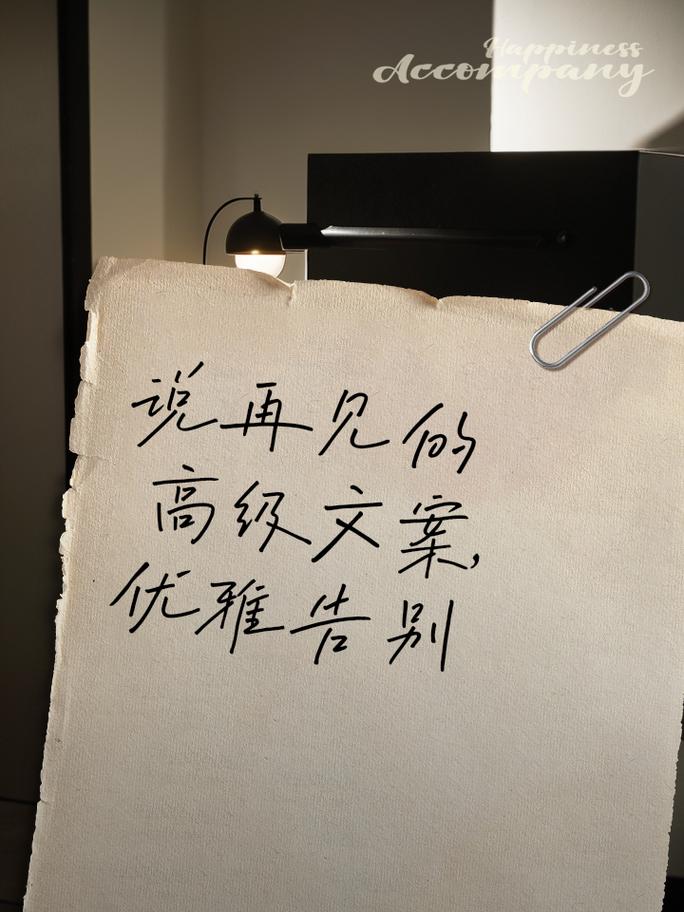 Happiness
Accompany
说再见的
高级文案,
优雅告别